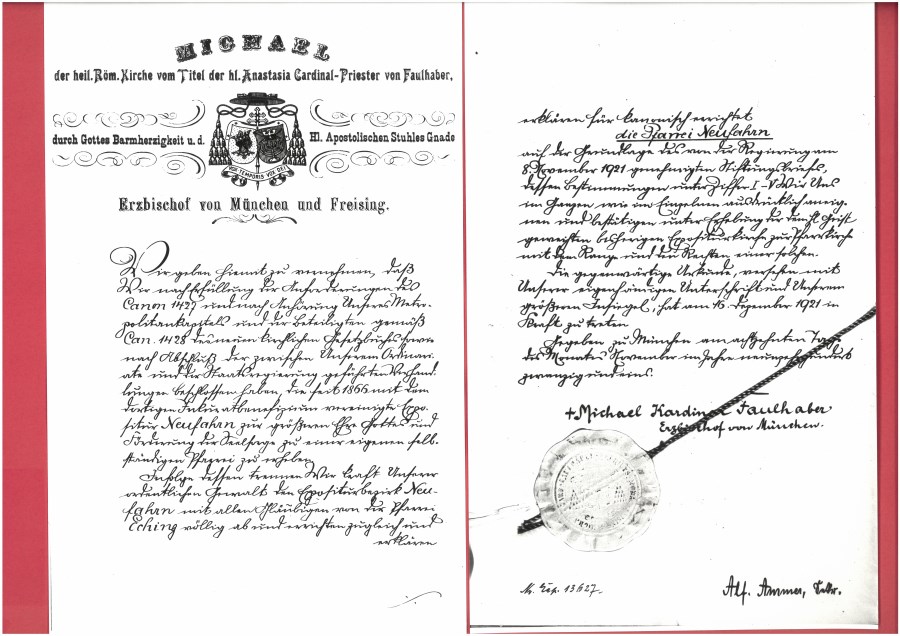 MICHAEL
der heil. Röm. Kirche vom Titel der hl. Anastasia Cardinal-Priester von Faulhaber,
durch Gottes Barmherzigkeit u. d. Hl. Apostolischen Stuhles Gnade
VOX TEMPORIS VOX DEI
Erzbischof von München und Freising.
Wir geben hiemit zu vernehmen, daß
Wir nach Erfüllung der Anforderungen des
Canon 1427 und nach Anhörung Unseres Metro-
politankapitels und der Beteiligten gemäß
Can. 1428 des neuen kirchlichen Gesetzbuches sowie
nach Abschluß der zwischen Unserem Ordinari-
ate und der Staatsregierung geführten Verhand-
lungen beschlossen haben, die seit 1866 mit dem
dortigen Inkuratbenefizium vereinigte Expo-
situr Neufahrn zur größeren Ehre Gottes und
Förderung der Seelsorge zu einer eigenen selb-
ständigen Pfarrei zu erheben.
Infolge dessen trennen Wir kraft Unserer
ordentlichen Gewalt den Expositurbezirk Neu-
fahrn mit allen Gläubigen von der Pfarrei
Eching völlig ab und errichten zugleich und
erklären
erklären für kanonisch errichtet
die Pfarrei Neufahrn
auf der Grundlage des von der Regierung am
8. November 1921 genehmigten Stiftungsbriefs,
dessen Bestimmungen unter Ziffer I-V Wir Uns
im Ganzen wie im Einzelnen ausdrücklich aneig-
nen und bestätigen unter Erhebung der dem hl. Geist
geweihten bisherigen Expositurkirche zur Pfarrkirche
mit dem Range und den Rechten einer solchen.
Die gegenwärtige Urkunde, versehen mit
Unserer eigenhändigen Unterschrift und Unserem
größeren Insiegel, hat am 16. Dezember 1921 in
Kraft zu treten.
Gegeben zu München am achtzehnten Tage
des Monates November im Jahre neunzehnhundert
zwanzig und eins.
+ Michael Kardinal Faulhaber
Erzbischof von München.
N. Exp. 13627.
Alf. Ammer, Sekr.